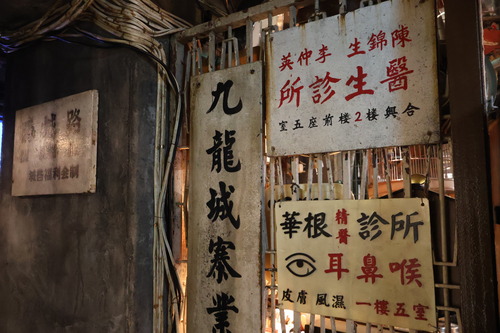 九龍城寨業
陳錦生 李仲英
醫生診所
合興樓2樓前座五室
華根精醫診所
耳鼻喉
皮膚 風濕 一樓五室